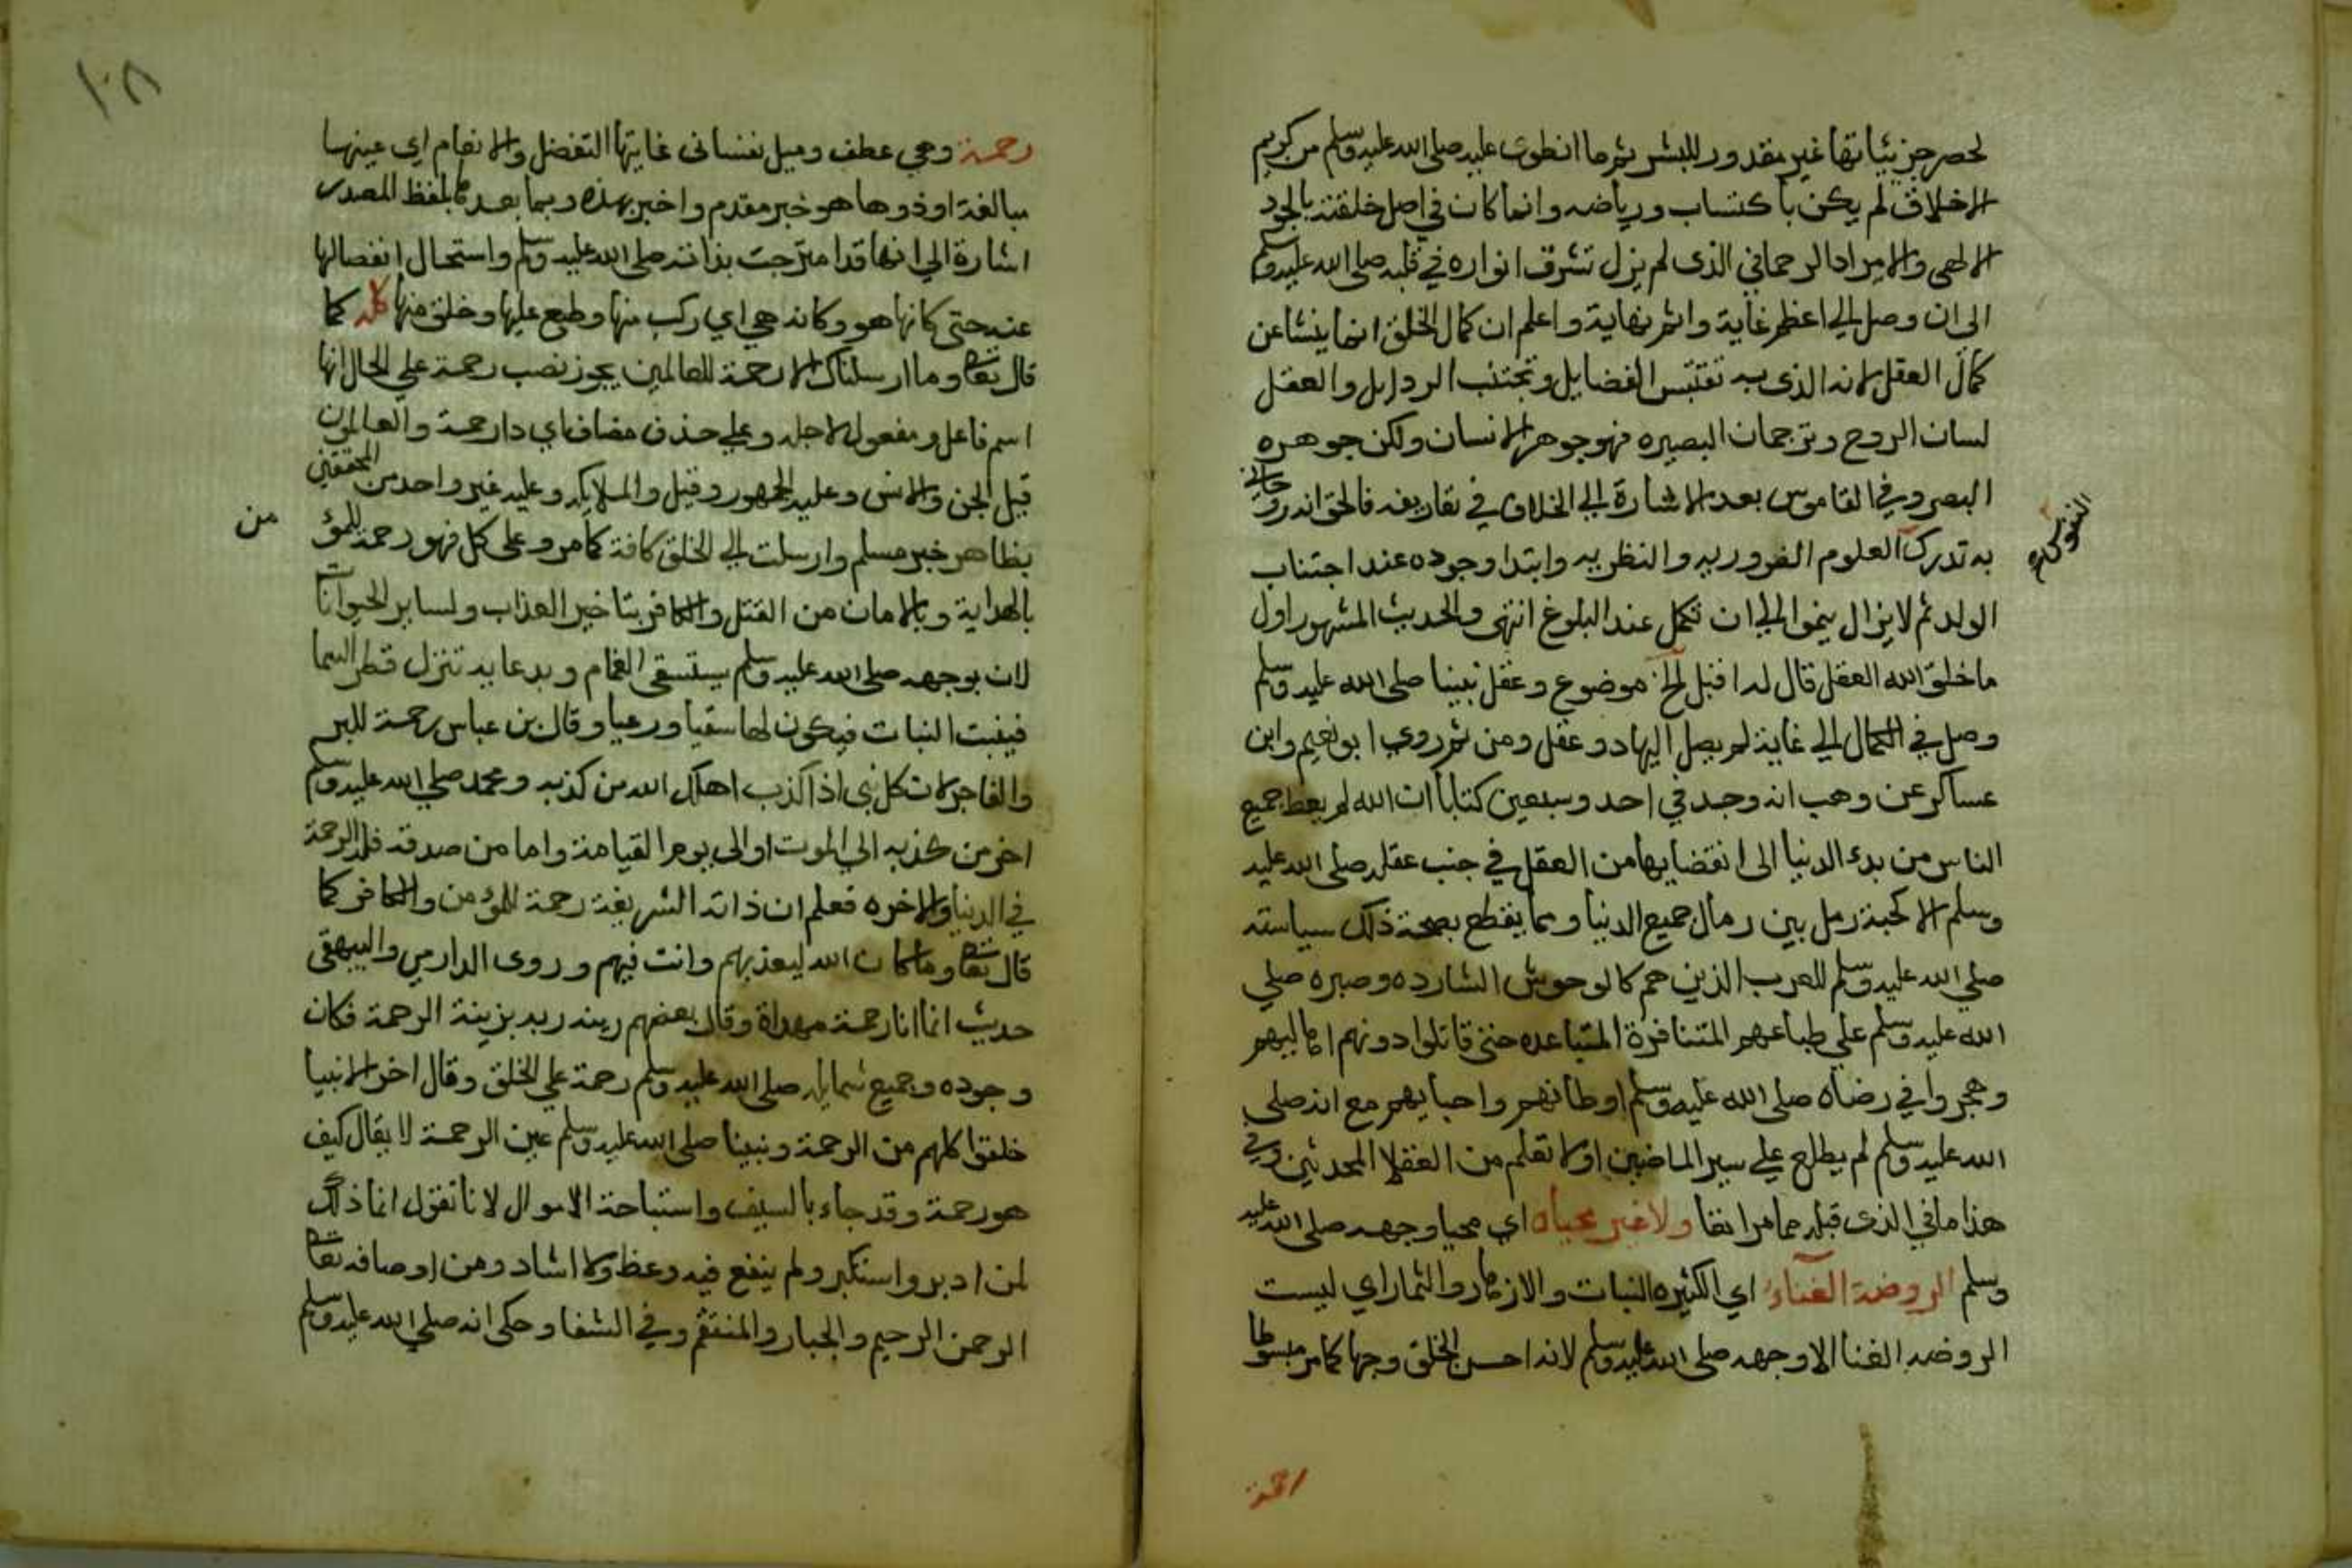 لحصر جزئياتها غير مقدور للبشر ثم ما انطوى عليه صلى الله عليه وسلم من كريم
الاخلاق لم يكن باكتساب ورياضه وانما كان في اصل خلقته بالجود
الالهي والامداد الرحماني الذى لم يزل تشرق انواره في قلبه صلى الله عليه وسلم
الى ان وصل الي اعظم غاية واتم نهاية واعلم ان كمال الخلق انما ينشا عن
كمال العقل لانه الذى به تقتبس الفضايل وتجتنب الرذايل والعقل
لسان الروح وترجمان البصيره فهو جوهر الانسان ولكن جوهره
البصر وفي القاموس بعد الاشارة الي الخلاف في تعاريفه فالحق انه روحاني
به تدرك العلوم الضروريه والنظريه وابتدا وجوده عند اجتنان
الولد ثم لا يزال ينموا الي ان تكمل عند البلوغ انتهى والحديث المشهور اول
ما خلق الله العقل قال له اقبل الخ موضوع وعقل نبينا صلى الله عليه وسلم
وصل في الكمال الي غاية لم يصل اليها ذو عقل ومن ثم روي ابو نعيم وابن
عساكر عن وهب انه وجد في احد وسبعين كتابا ان الله لم يعط جميع
الناس من بدء الدنيا الى انقضايها من العقل في جنب عقله صلى الله عليه
وسلم الا كحبة رمل بين رمال جميع الدنيا ومما يقطع بصحة ذلك سياسته
صلي الله عليه وسلم للعرب الذين هم كالوحوش الشارده وصبره صلي
الله عليه وسلم علي طباعهم المتنافرة المتباعده حتى قاتلوا دونهم اهاليهم
وهجروا في رضاه صلى الله عليه وسلم اوطانهم واحبايهم مع انه صلى
الله عليه وسلم لم يطلع علي سير الماضين اولا تعلم من العقلا المحدثين وفي
هذا ما في الذى قبله مما مر انفا ولا غير محياه اي محيا وجهه صلى الله عليه
وسلم الروضة الغناء اي الكثيره النبات والازهار والثمار اي ليست
الروضه الغنا الا وجهه صلى الله عليه وسلم لانه احسن الخلق وجها كما مر مبسوطا
رحمة
رحمة وهي عطف وميل نفسانى غايتها التفضل والانعام اي عينها
مبالغة او ذوها هو خبر مقدم واخبر بهذه وبما بعدها بلفظ المصدر
اشارة الي انها قد امتزجت بذاته صلى الله عليه وسلم واستحال انفصالها
عنه حتى كانها هو وكانه هي اي ركب منها وطبع عليها وخلق منها كله كما
قال تعالى وما ارسلناك الا رحمة للعالمين يجوز نصب رحمة علي الحال انها
اسم فاعل ومفعول لاجله وعلي حذف مضاف اي ذا رحمة والعالمون
قيل الجن والانس وعليه الجمهور وقيل والملايكه وعليه غير واحد من المحققين
من
بظاهر خبر مسلم وارسلت الي الخلق كافة كما مر وعلى كل فهو رحمة للمؤ
بالهداية وبالامان من القتل والكافر بتاخير العذاب ولساير الحيوانات
لان بوجهه صلى الله عليه وسلم يستسقى الغمام وبدعايه تنزل قطر السما
فينبت النبات فيكون لها سقيا ورعيا وقال بن عباس رحمة للبر
والفاجر لان كل نبى اذا كذب اهلك الله من كذبه ومحمد صلي الله عليه وسلم
اخر من كذبه الي الموت او الى يوم القيامة واما من صدقه فله الرحمة
في الدنيا والاخره فعلم ان ذاته الشريفة رحمة للمؤمن والكافر كما
قال تعالى وما كان الله ليعذبهم وانت فيهم وروى الدارمي والبيهقى
حديث انما انا رحمة مهداة وقال بعضهم زينه ربه بزينة الرحمة فكان
وجوده وجميع شمايله صلى الله عليه وسلم رحمة علي الخلق وقال اخر الانبيا
خلقوا كلهم من الرحمة ونبينا صلى الله عليه وسلم عين الرحمة لا يقال كيف
هو رحمة وقد جاء بالسيف واستباحة الاموال لانا نقول انما ذلك
لمن ادبر واستكبر ولم ينفع فيه وعظ ولا ارشاد ومن اوصافه تعالى
الرحمن الرحيم والجبار والمنتقم وفي الشفا وحكى انه صلي الله عليه وسلم
١٠٨